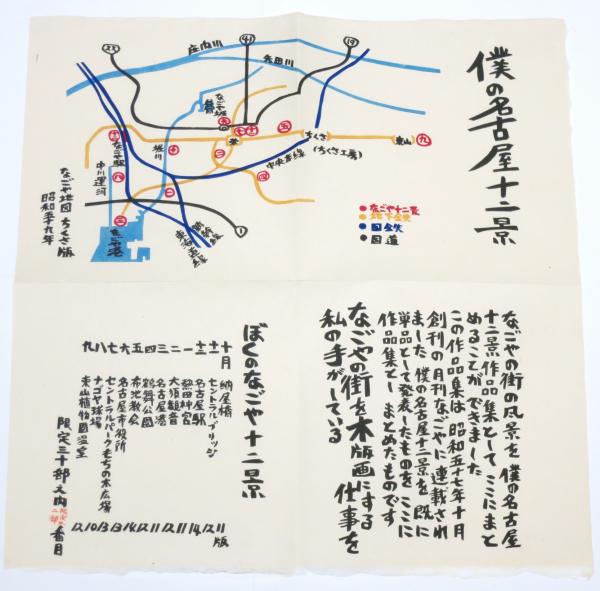 僕の名古屋十二景
22
41
19
庄内川
矢田川
なごや城
栄
ちくさ
(ちくさ工房)
東山
九
五
四
三
二
十
八
なごや駅
堀川
中川運河
中央本線
新幹線
東海道線
名古屋港
1
なごや地図 ちくさ版
昭和五十九年
なごや十二景
地下鉄
国鉄
国道
なごやの街の風景を 僕の名古屋
十二景作品集として ここにまと
めることが できました
この作品集は 昭和五十七年十月
創刊の月刊なごやに連載され
ました 僕の名古屋十二景を 既に
単品として発表したものを ここに
作品集として まとめたものです
なごやの街を木版画にする
私の手がしている 仕事を
ぼくのなごや十二景
十月 納屋橋 11版
十一 セントラルブリッジ 12
十二 名古屋駅 14
一 熱田神宮 11
二 大須観音 12
三 名古屋港 11
四 鶴舞公園 12
五 布池教会 14
六 名古屋市役所 13
七 セントラルパークもちの木広場 13
八 ナゴヤ球場 10
九 東山植物園温室 12
限定三十部之内 二部 番目